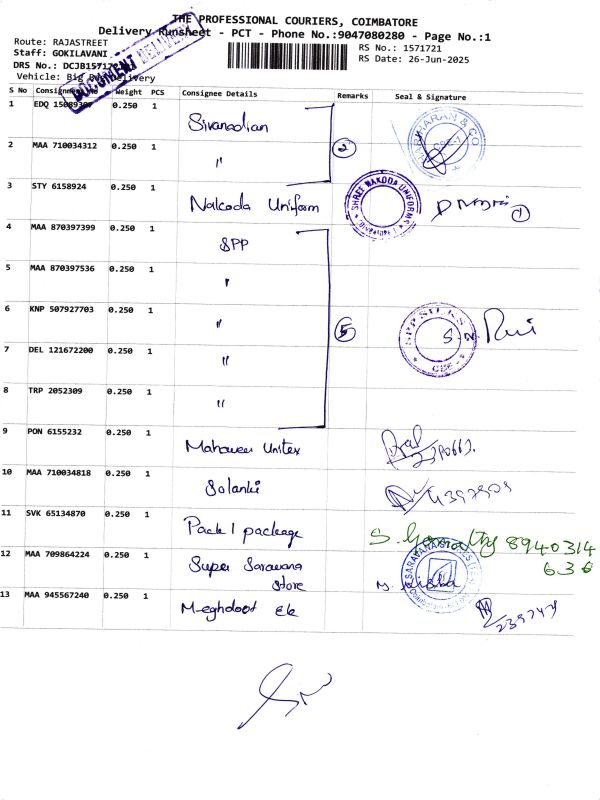 THE PROFESSIONAL COURIERS, COIMBATORE
Delivery Runsheet - PCT - Phone No.:9047080280 - Page No.:1
Route: RAJASTREET
RS No.: 1571721
Staff: GOKILAVANI
RS Date: 26-Jun-2025
DRS No.: DCJB1571721
Vehicle: Big Bag Delivery
DOCUMENT DELIVERY
S No Consignment No Weight PCS Consignee Details Remarks Seal & Signature
1 EDQ 0.250 1 Sivanadian
2 MAA 710034312 0.250 1 " 2
3 STY 6158924 0.250 1 Nakoda Uniform SHREE NAKODA UNIFORMS 1
4 MAA 870397399 0.250 1 SPP
5 MAA 870397536 0.250 1 "
6 KNP 507927703 0.250 1 " 5 SPP SILKS CBE
7 DEL 121672200 0.250 1 "
8 TRP 2052309 0.250 1 "
9 PON 6155232 0.250 1 Mahaveer Unitex
10 MAA 710034818 0.250 1 Solanki
11 SVK 65134870 0.250 1 Pack 1 package 8940314
636
12 MAA 709864224 0.250 1 Super Saravana
Store
13 MAA 945567240 0.250 1 Meghdoot